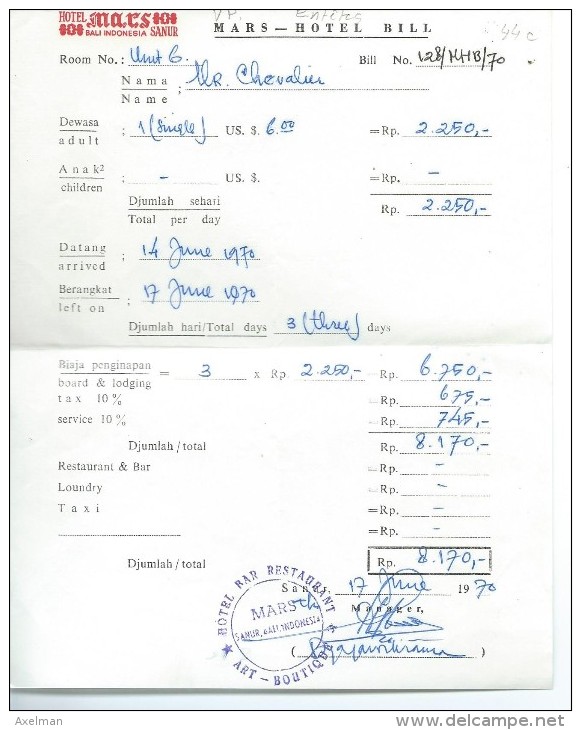 HOTEL Mars SANUR
BALI INDONESIA
MARS — HOTEL BILL
44c
Room No.: Unit 6. Bill No. 128/MHB/70
Nama
Name : Mr. Chevalier
Dewasa
adult : 1 (single) US. $. 6.00 =Rp. 2.250,-
Anak²
children : - US. $. =Rp. -
Djumlah sehari
Total per day Rp. 2.250,-
Datang
arrived : 14 June 1970
Berangkat
left on : 17 June 1970
Djumlah hari/Total days 3 (three) days
Biaja penginapan
board & lodging = 3 x Rp. 2.250,- =Rp. 6.750,-
tax 10% =Rp. 675,-
service 10% =Rp. 745,-
Djumlah/total =Rp. 8.170,-
Restaurant & Bar =Rp. -
Loundry =Rp. -
Taxi =Rp. -
=Rp. -
Djumlah/total Rp. 8.170,-
Sanur, 17 June 1970
Manager,
HOTEL BAR RESTAURANT
MARS
SANUR, BALI INDONESIA
ART - BOUTIQUE
Axelman
www.delcampe.net